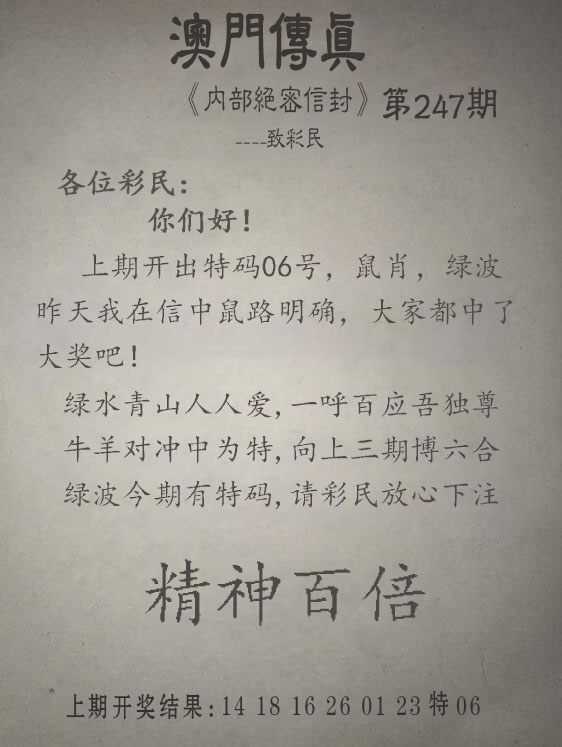 澳門傳眞
《内部絕密信封》第247期
----致彩民
各位彩民:
你们好!
上期开出特码06号，鼠肖，绿波
昨天我在信中鼠路明确，大家都中了
大奖吧!
绿水青山人人爱,一呼百应吾独尊
牛羊对冲中为特,向上三期博六合
绿波今期有特码,请彩民放心下注
精神百倍
上期开奖结果:14 18 16 26 01 23 特 06